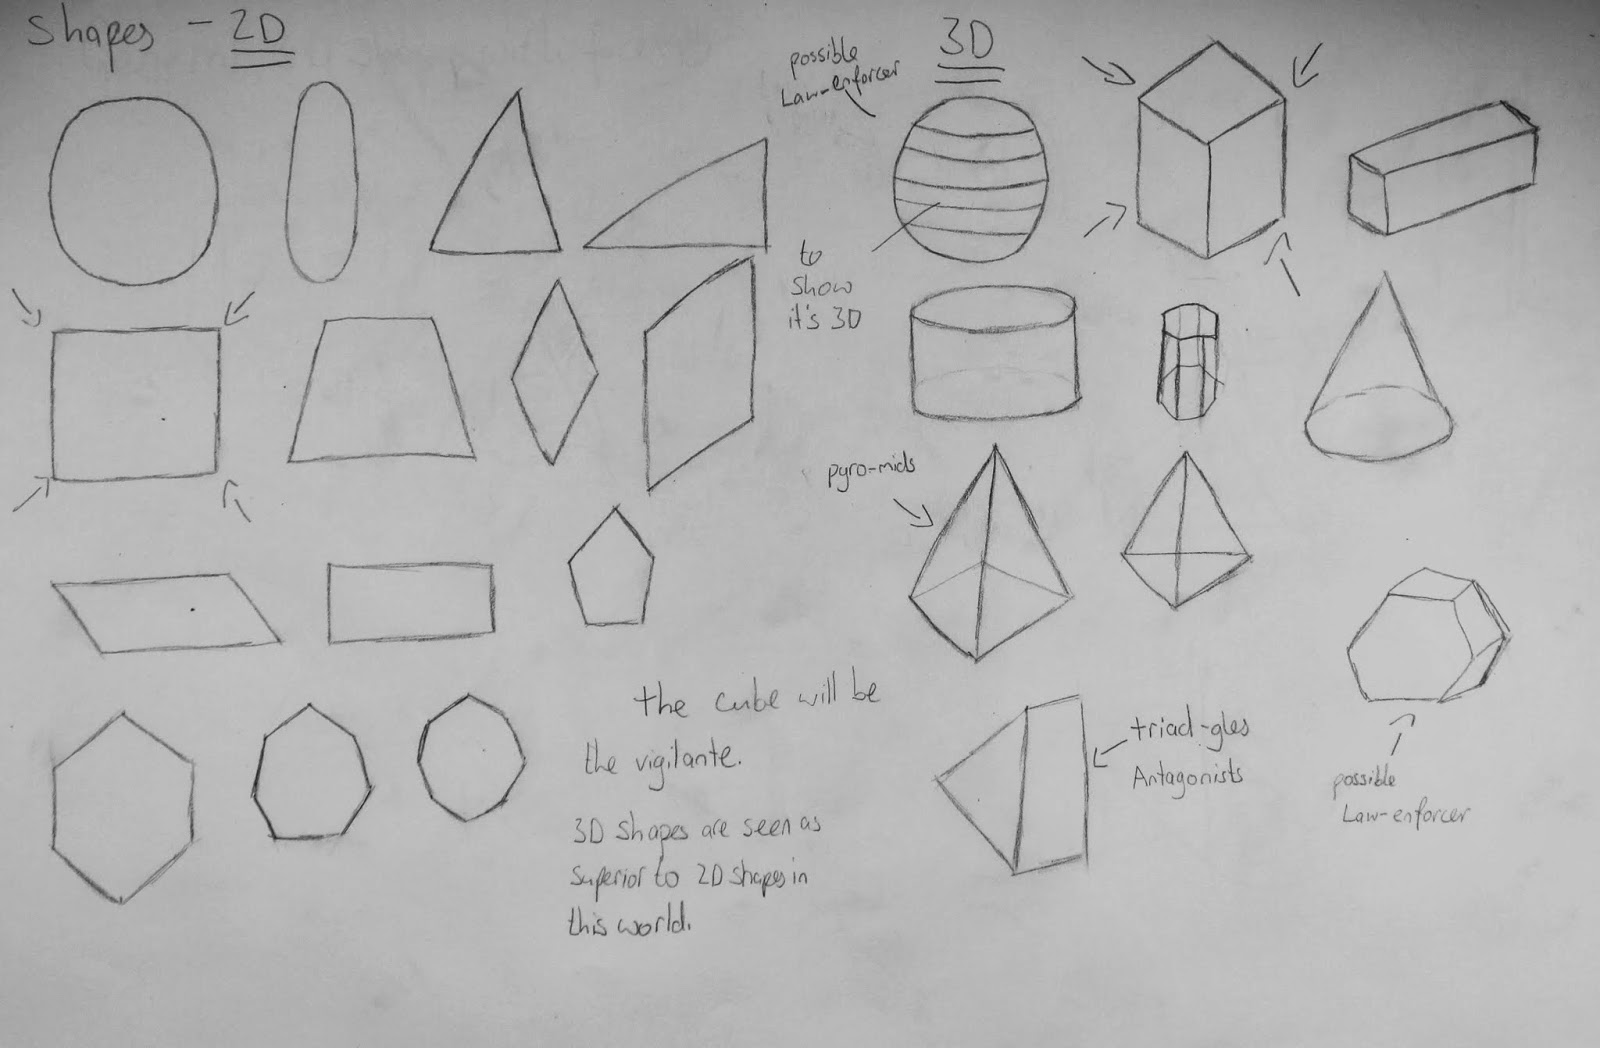 Shapes - 2D
3D
possible
Law-enforcer
to
show
it's 3D
pyro-mids
the cube will be
the vigilante.
3D shapes are seen as
superior to 2D shapes in
this world.
triad-gles
Antagonists
possible
Law-enforcer